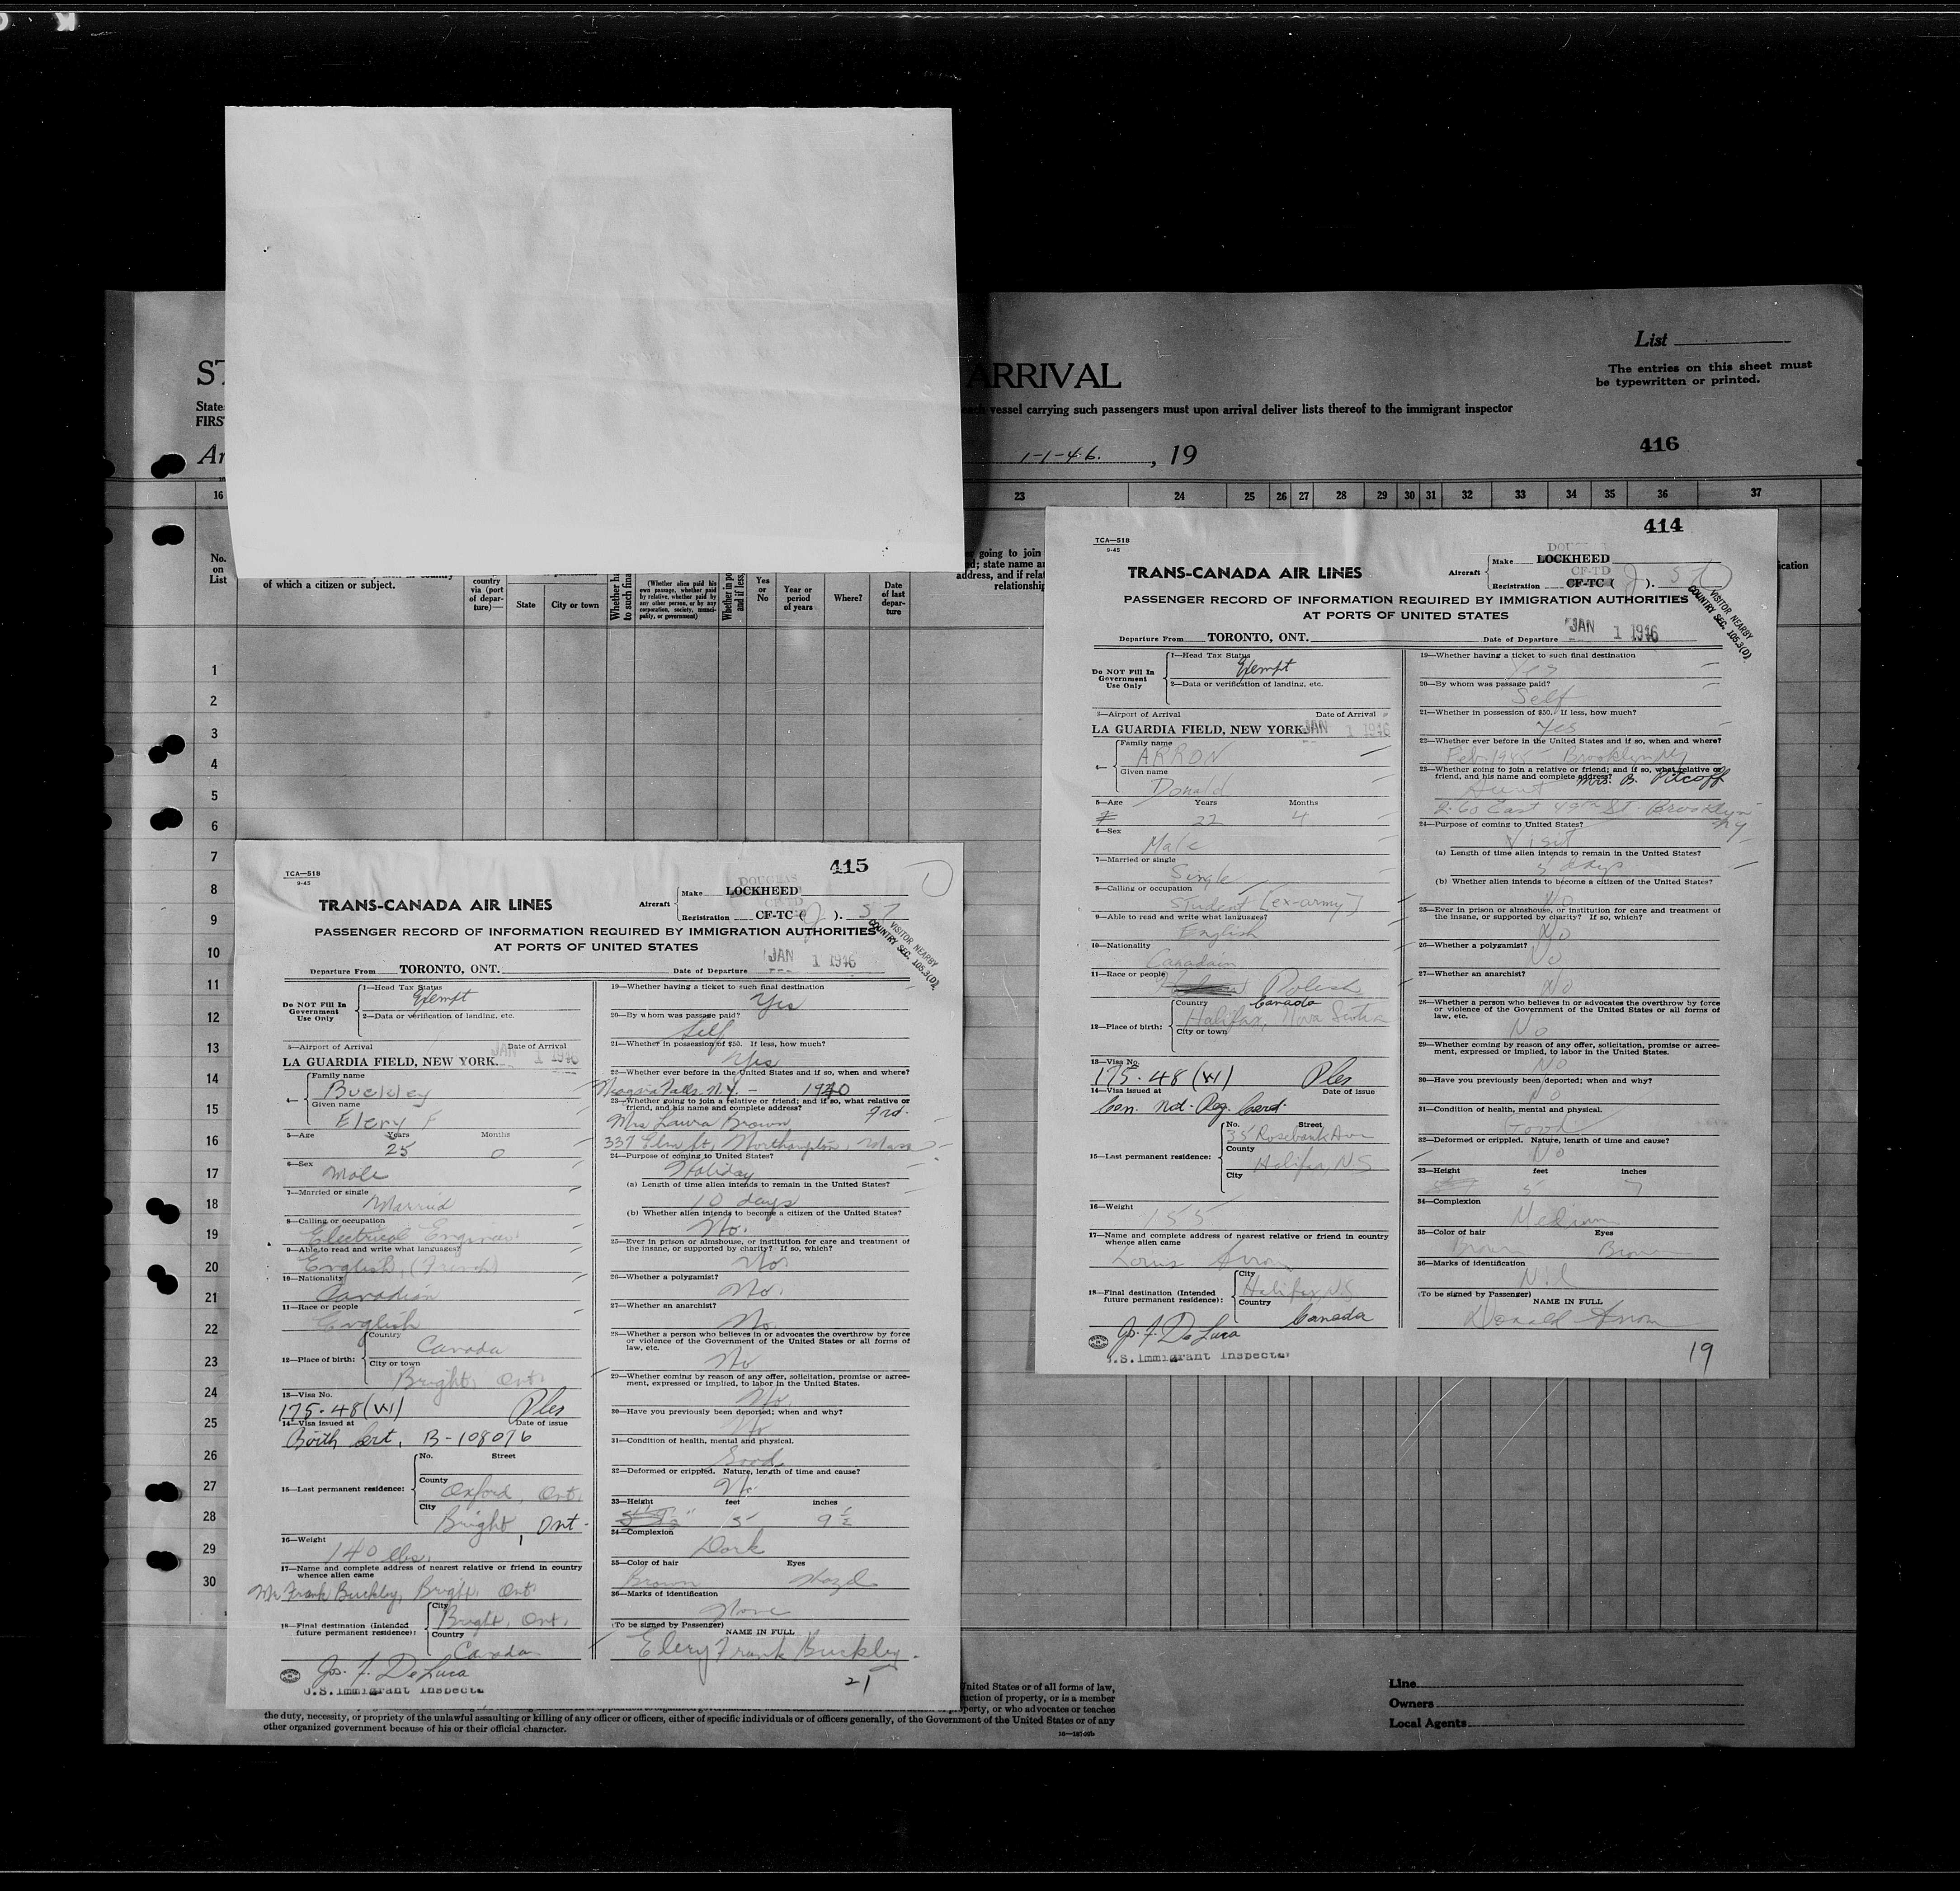 List
The entries on this sheet must
be typewritten or printed.
ARRIVAL
each vessel carrying such passengers must upon arrival deliver lists thereof to the immigrant inspector
416
1-1-46. , 19
16 23 24 25 26 27 28 29 30 31 32 33 34 35 36 37
No.
on
List
of which a citizen or subject.
country
via (port
of depar-
ture)—
State
City or town
(Whether alien paid his
own passage, whether paid
by relative, whether paid by
any other person, or by any
corporation, society, munici-
pality, or government)
Yes
or
No
Year or
period
of years
Where?
Date
of last
depar-
ture
going to join
address, and if
relationship
1
2
3
4
5
6
7
8
9
10
11
12
13
14
15
16
17
18
19
20
21
22
23
24
25
26
27
28
29
30
414
TCA—518
9-45
TRANS-CANADA AIR LINES
Aircraft
Make LOCKHEED
Registration CF-TC ( ).
CF-TD
VISITOR NEARBY
COUNTRY SEC. 105.3(D)
PASSENGER RECORD OF INFORMATION REQUIRED BY IMMIGRATION AUTHORITIES
AT PORTS OF UNITED STATES
Departure From TORONTO, ONT. Date of Departure JAN 1 1946
Do NOT Fill In
Government
Use Only
1—Head Tax Status
Exempt
2—Data or verification of landing, etc.
3—Airport of Arrival Date of Arrival
LA GUARDIA FIELD, NEW YORK JAN 1 1946
4—
Family name
ARRON
Given name
Donald
5—Age Years Months
22 4
6—Sex
Male
7—Married or single
Single
8—Calling or occupation
Student [ex-army]
9—Able to read and write what languages?
English
10—Nationality
Canadain
11—Race or people
Polish
12—Place of birth:
Country
Canada
Halifax, Nova Scotia
City or town
13—Visa No.
175-48 (VI)
14—Visa issued at Date of issue
Can. Nat. Reg. Card.
15—Last permanent residence:
No. Street
35 Rosebank Ave
County
Halifax, NS
City
16—Weight
155
17—Name and complete address of nearest relative or friend in country
whence alien came
Louis Arron
18—Final destination (Intended
future permanent residence):
City
Halifax, NS
Country
Canada
Jos. F. De Luca
U.S. Immigrant Inspector
19—Whether having a ticket to such final destination
Yes
20—By whom was passage paid?
Self
21—Whether in possession of $50. If less, how much?
Yes
22—Whether ever before in the United States and if so, when and where?
Brooklyn NY
23—Whether going to join a relative or friend; and if so, what relative or
friend, and his name and complete address?
Mrs. B. Pitcoff
Aunt
East 49th St. Brooklyn
NY
24—Purpose of coming to United States?
Visit
(a) Length of time alien intends to remain in the United States?
days
(b) Whether alien intends to become a citizen of the United States?
No
25—Ever in prison or almshouse, or institution for care and treatment of
the insane, or supported by charity? If so, which?
No
26—Whether a polygamist?
No
27—Whether an anarchist?
No
28—Whether a person who believes in or advocates the overthrow by force
or violence of the Government of the United States or all forms of
law, etc.
No
29—Whether coming by reason of any offer, solicitation, promise or agree-
ment, expressed or implied, to labor in the United States.
No
30—Have you previously been deported; when and why?
No
31—Condition of health, mental and physical.
Good
32—Deformed or crippled. Nature, length of time and cause?
No
33—Height feet inches
5 7
34—Complexion
Medium
35—Color of hair Eyes
Brown Brown
36—Marks of identification
Nil
(To be signed by Passenger)
NAME IN FULL
Donald Arron
19
415
TCA—518
9-45
TRANS-CANADA AIR LINES
Aircraft
DOUGLAS
Make LOCKHEED
CF-TD
Registration CF-TC ( ). 57
VISITOR NEARBY
COUNTRY SEC. 105.3(D)
PASSENGER RECORD OF INFORMATION REQUIRED BY IMMIGRATION AUTHORITIES
AT PORTS OF UNITED STATES
Departure From TORONTO, ONT. Date of Departure JAN 1 1946
Do NOT Fill In
Government
Use Only
1—Head Tax Status
Exempt
2—Data or verification of landing, etc.
3—Airport of Arrival Date of Arrival
LA GUARDIA FIELD, NEW YORK JAN 1 1946
4—
Family name
Buckley
Given name
Elery F
5—Age Years Months
25 0
6—Sex
Male
7—Married or single
Married
8—Calling or occupation
Electrical Engineer
9—Able to read and write what languages?
English, (French)
10—Nationality
Canadian
11—Race or people
English
12—Place of birth:
Country
Canada
City or town
Bright, Ont.
13—Visa No.
175-48 (VI)
14—Visa issued at Date of issue
Birth Cert. B-108076
15—Last permanent residence:
No. Street
County
Oxford, Ont.
City
Bright, Ont.
16—Weight
140 lbs.
17—Name and complete address of nearest relative or friend in country
whence alien came
Mr Frank Buckley, Bright, Ont.
18—Final destination (Intended
future permanent residence):
City
Bright, Ont.
Country
Canada
Jos. F. De Luca
U.S. Immigrant Inspecto
19—Whether having a ticket to such final destination
Yes
20—By whom was passage paid?
Self
21—Whether in possession of $50. If less, how much?
Yes
22—Whether ever before in the United States and if so, when and where?
Niagara Falls N.Y. – 1940
23—Whether going to join a relative or friend; and if so, what relative or
friend, and his name and complete address?
Frd.
Mrs Laura Brown
337 Elm St, Northampton, Mass
24—Purpose of coming to United States?
Holiday
(a) Length of time alien intends to remain in the United States?
10 days
(b) Whether alien intends to become a citizen of the United States?
No.
25—Ever in prison or almshouse, or institution for care and treatment of
the insane, or supported by charity? If so, which?
No.
26—Whether a polygamist?
No.
27—Whether an anarchist?
No.
28—Whether a person who believes in or advocates the overthrow by force
or violence of the Government of the United States or all forms of
law, etc.
No
29—Whether coming by reason of any offer, solicitation, promise or agree-
ment, expressed or implied, to labor in the United States.
No.
30—Have you previously been deported; when and why?
No
31—Condition of health, mental and physical.
Good
32—Deformed or crippled. Nature, length of time and cause?
No.
33—Height feet inches
5 9 ½
34—Complexion
Dark
35—Color of hair Eyes
Brown Hazel
36—Marks of identification
None
(To be signed by Passenger)
NAME IN FULL
Elery Frank Buckley.
21
United States or of all forms of law,
the duty, necessity, or propriety of the unlawful assaulting or killing of any officer or officers, either of specific individuals or of officers generally, of the Government of the United States or of any
other organized government because of his or their official character.
Line
Owners
Local Agents